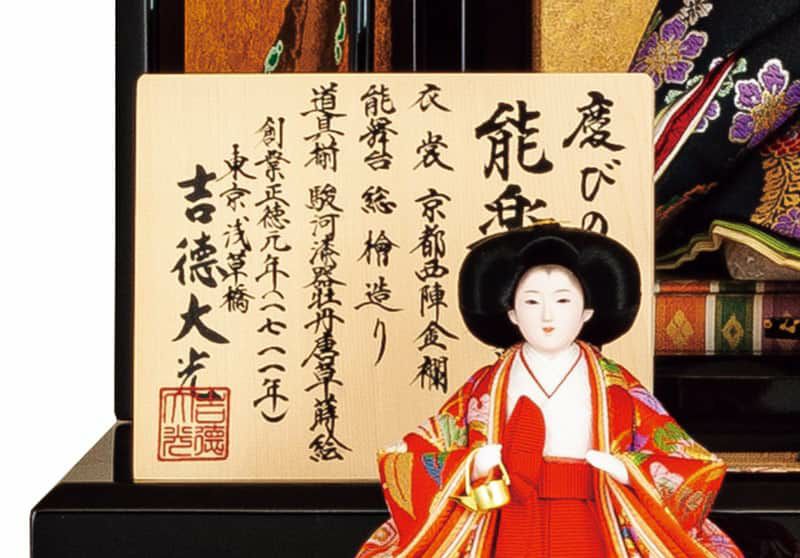 慶びの
能楽
衣裳 京都西陣金襴
能舞台 総檜造り
道具揃 駿河漆器牡丹唐草蒔絵
創業正徳元年(一七一一年)
東京浅草橋
吉德大光
吉德大光